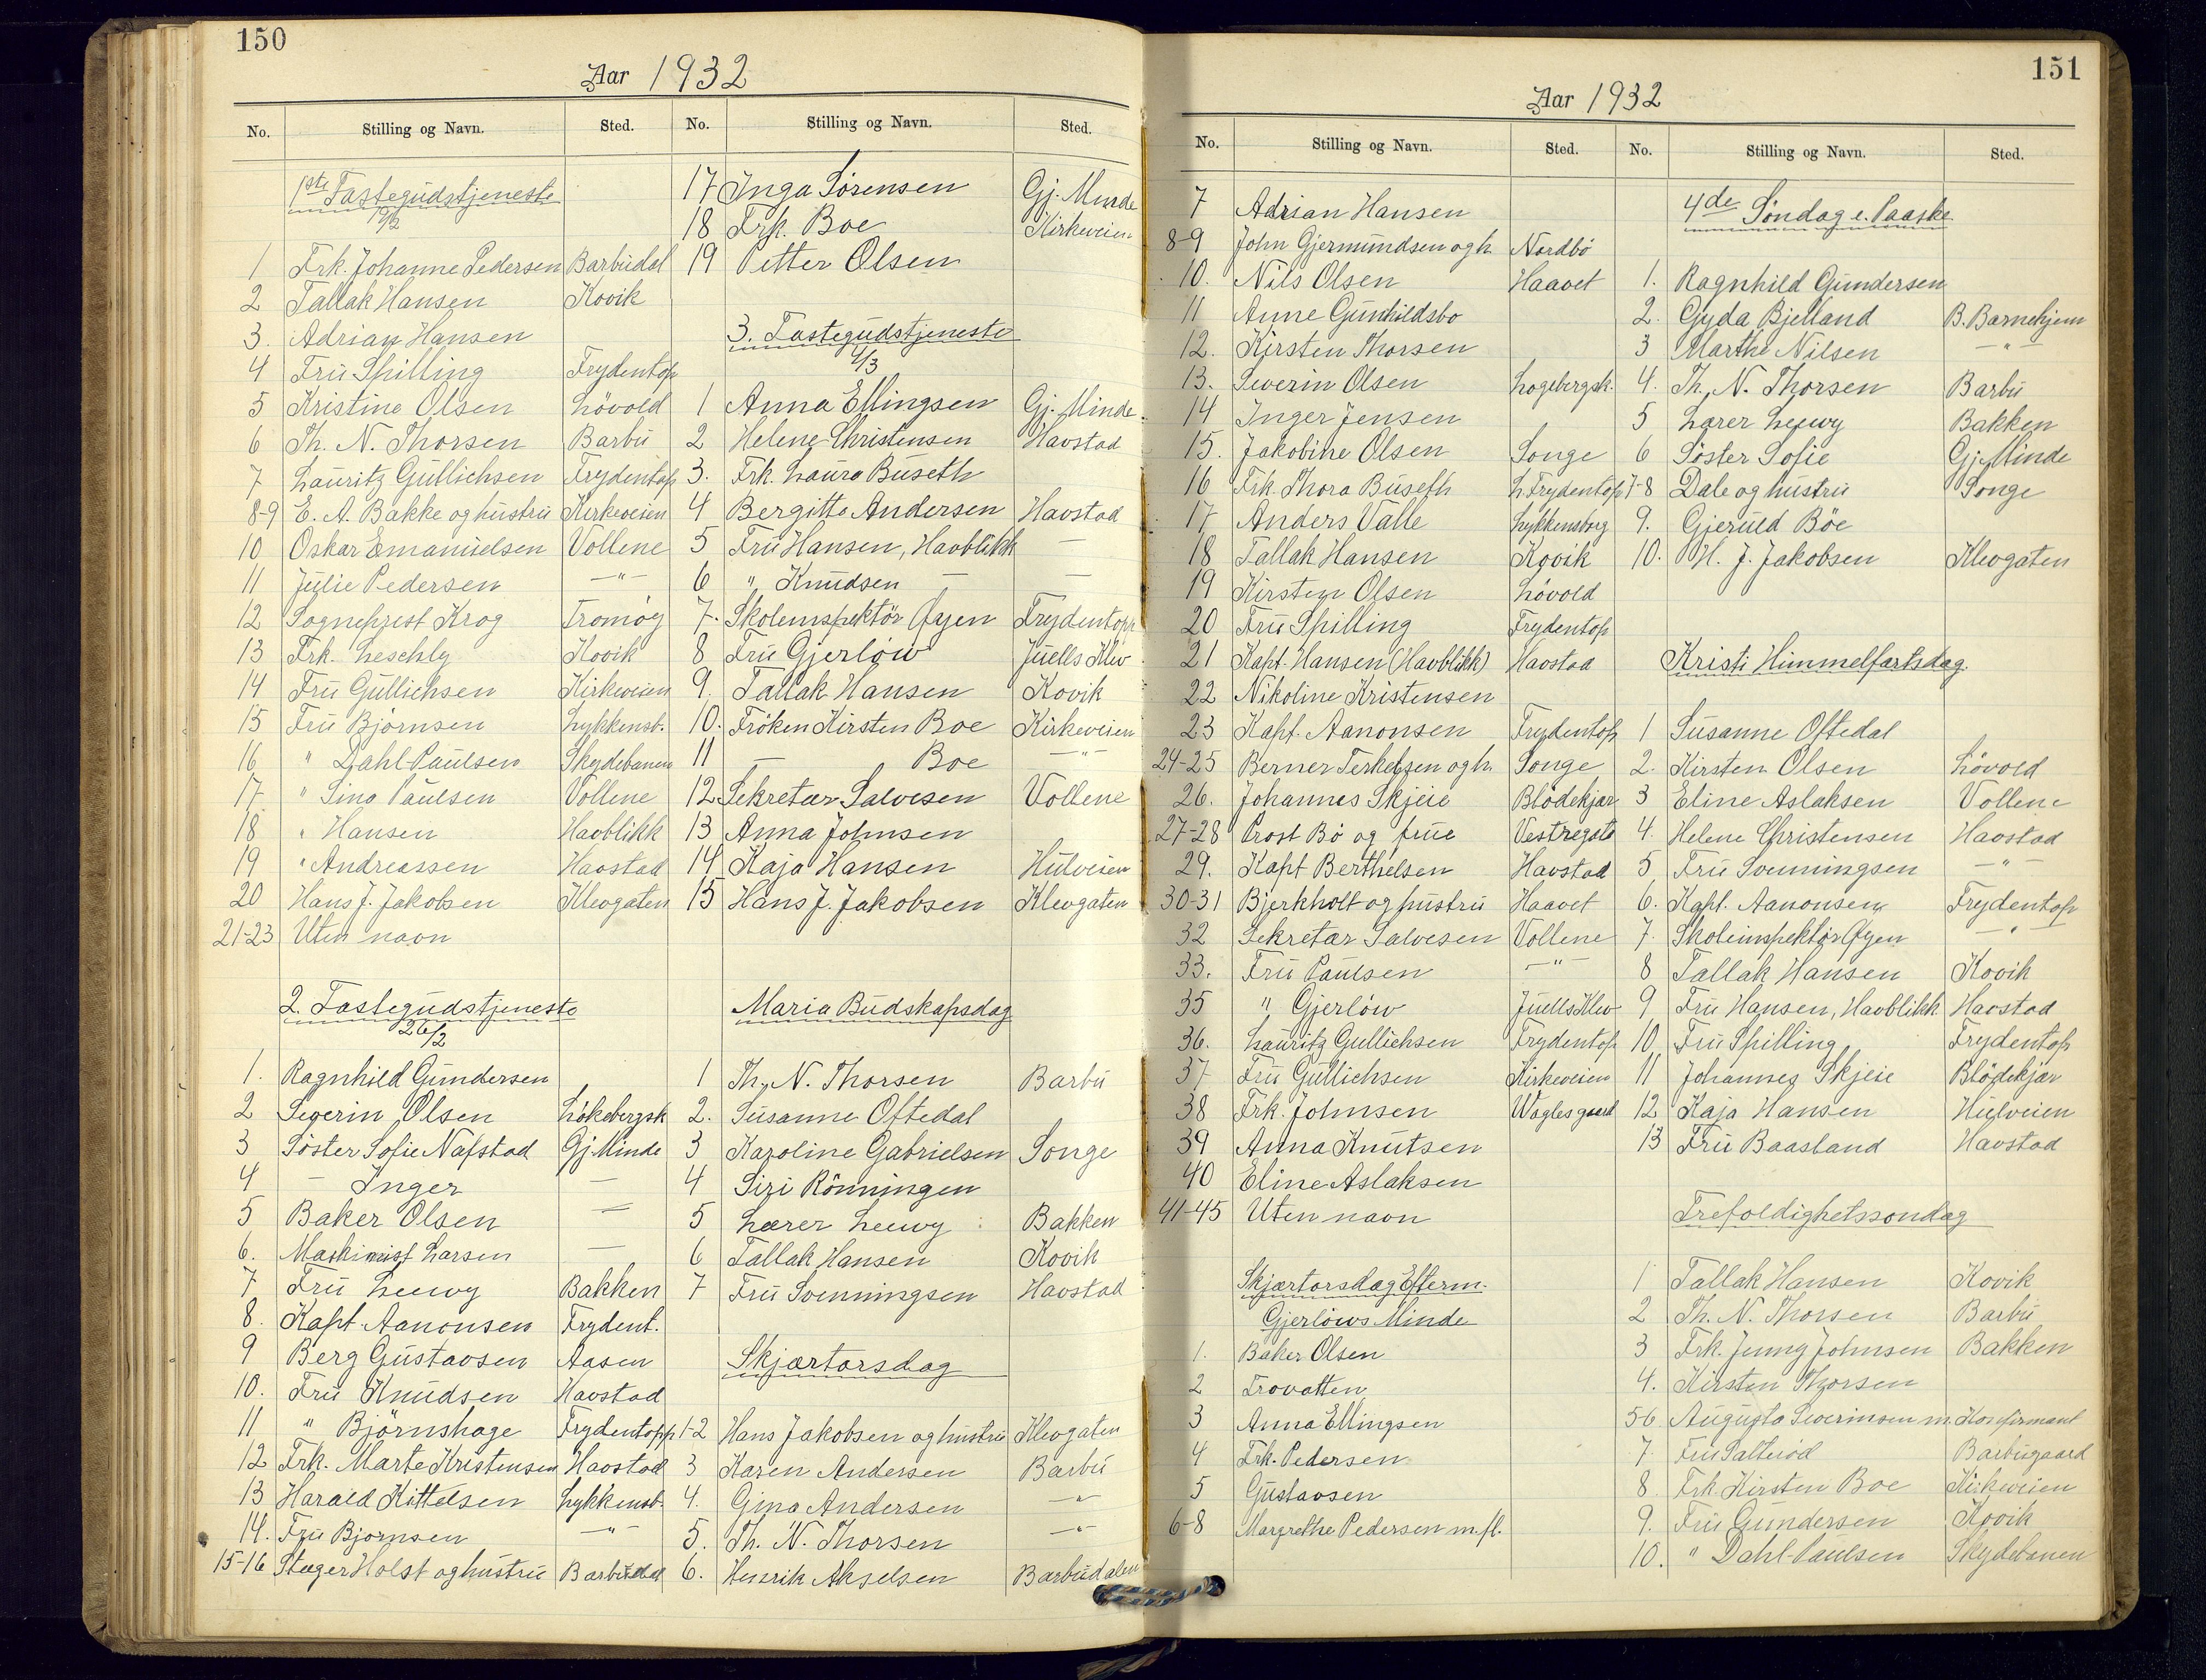 150
Aar 1932
No. Stilling og Navn. Sted. No. Stilling og Navn. Sted.
1ste Fastegudstjeneste
19/2
1 Frk. Johanne Pedersen Barbudal
2 Tallak Hansen Kovik
3. Adrian Hansen
4 Fru Spilling Frydentop
5 Kristine Olsen Lövold
6 Th. N. Thorsen Barbu
7 Lauritz Gullichsen Frydentop
8-9 E. A. Bakke og hustru Kirkeveien
10 Oskar Emanuelsen Vollene
11 Julie Pedersen —"—
12 Sogneprest Krog Tromøy
13 Frk. Leschly Kovik
14 Fru Gullichsen Kirkeveien
15 Fru Björnsen Lykkensb.
16 " Dahl-Paulsen Skydebanen
17. " Sina Paulsen Vollene
18 " Hansen Havblikk
19 " Andreassen Havstad
20 Hans J. Jakobsen Klevgaten
21-23 Uten navn
2. Fastegudstjeneste
26/2
1. Ragnhild Gundersen
2 Severin Olsen Lökebergsk
3 Söster Sofie Nafstad Gj. Minde
4 — Inger —
5 Baker Olsen —
6. Maskinist Larsen —
7 Fru Leewy Bakken
8. Kapt. Aanonsen Frydent.
9 Berg Gustavsen Aasen
10. Fru Knudsen Havstad
11 " Björnshage Frydentopp
12 Frk. Marte Kristensen Havstad
13 Harald Kittelsen Lykkensb.
14. Fru Bjornsen —"—
15-16 Stuger Holst og hustru Barbudal
17 Inga Sörensen Gj. Minde
18 Frk. Boe Kirkeveien
19 Petter Olsen
3. Fastegudstjeneste
4/3
1 Anna Ellingsen Gj. Minde.
2 Helene Christensen Havstad
3. Frk. Laura Buseth
4 Bergitte Andersen Havstad
5 Fru Hansen, Havblikk —
6 " Knudsen — —
7. Skoleinspektör Øyen Frydentopp
8 Fru Gjerlöw Juells Klev
9. Tallak Hansen Kovik
10. Fröken Kirsten Boe Kirkeveien
11 — Boe —"—
12 Sekretær Salvesen Vollene
13 Anna Johnsen
14 Kaja Hansen Hulveien
15 Hans J. Jakobsen Klevgaten
Maria Budskapsdag
1 Th. N. Thorsen Barbu
2. Susanne Oftedal
3 Karoline Gabrielsen Songe
4 Siri Rönningen
5 Lærer Leewy Bakken
6 Tallak Hansen Kovik
7 Fru Svenningsen Havstad
Skjærtorsdag
1-2 Hans Jakobsen og hustru Klevgaten
3 Karen Andersen Barbu
4. Gina Andersen —"—
5. Th. N. Thorsen —"—
6. Henrik Akselsen Barbudalen
151
Aar 1932
No. Stilling og Navn. Sted. No. Stilling og Navn. Sted.
7 Adrian Hansen
8-9 John Gjermundsen og h. Nordbö
10. Nils Olsen Haavet
11 Anne Gunhildsbo
12. Kirsten Thorsen
13. Severin Olsen Logebergsk.
14 Inger Jensen
15. Jakobine Olsen Songe
16 Frk. Thora Buseth L. Frydentop
17 Anders Valle Lykkensborg
18 Tallak Hansen Kovik
19 Kirsten Olsen Lövold
20 Fru Spilling Frydentop
21 Kapt. Hansen (Havblikk) Havstad
22 Nikoline Kristensen
23 Kapt. Aanonsen Frydentop
24-25 Berner Terkelsen og h. Songe
26. Johannes Skjeie Blödekjær
27-28 Prost Bö og frue Vestregate
29. Kapt Berthelsen Havstad
30-31 Bjerkholt og hustru Haavet
32 Sekretær Salvesen Vollene
33. Fru Paulsen —"—
35 " Gjerlöw Juells Klev
36. Lauritz Gullichsen Frydentop
37 Fru Gullichsen Kirkeveien
38 Frk. Johnsen Waglesgaard
39 Anna Knutsen
40 Eline Aslaksen
41-45 Uten navn
Skjærtorsdag Efterm.
Gjerlöws Minde
1. Baker Olsen
2 Trovatten
3 Anna Ellingsen
4 Frk. Pedersen
5 Gustavsen
6-8 Margrethe Pedersen m. fl.
4de Söndag e. Paaske
1. Ragnhild Gundersen
2. Gyda Bjelland B. Barnehjem
3 Marthe Nilsen —"—
4. Th. N. Thorsen Barbu
5 Lærer Leewy Bakken
6 Söster Sofie Gj. Minde
7-8 Dale og hustru Songe
9. Gjeruld Böe
10. H. J. Jakobsen Klevgaten
Kristi Himmelfartsdag.
1 Susanne Oftedal
2. Kirsten Olsen Lövold
3 Eline Aslaksen Vollene
4. Helene Christensen Havstad
5 Fru Svenningsen —"—
6. Kapt. Aanonsen Frydentop
7. Skoleinspektör Øyen —"—
8 Tallak Hansen Kovik
9 Fru Hansen, Havblikk Havstad
10 Fru Spilling Frydentop
11 Johannes Skjeie Blödekjær
12 Kaja Hansen Hulveien
13 Fru Baasland Havstad
Trefoldighetssöndag
1 Tallak Hansen Kovik
2 Th. N. Thorsen Barbu
3 Frk. Jenny Johnsen Bakken
4. Kirsten Thorsen
56. Augusta Severinsen m. Konfirmant
7. Fru Salteröd Barbugaard
8. Frk. Kirsten Boe Kirkeveien
9. Fru Gundersen Kovik
10. " Dahl-Paulsen Skydebanen